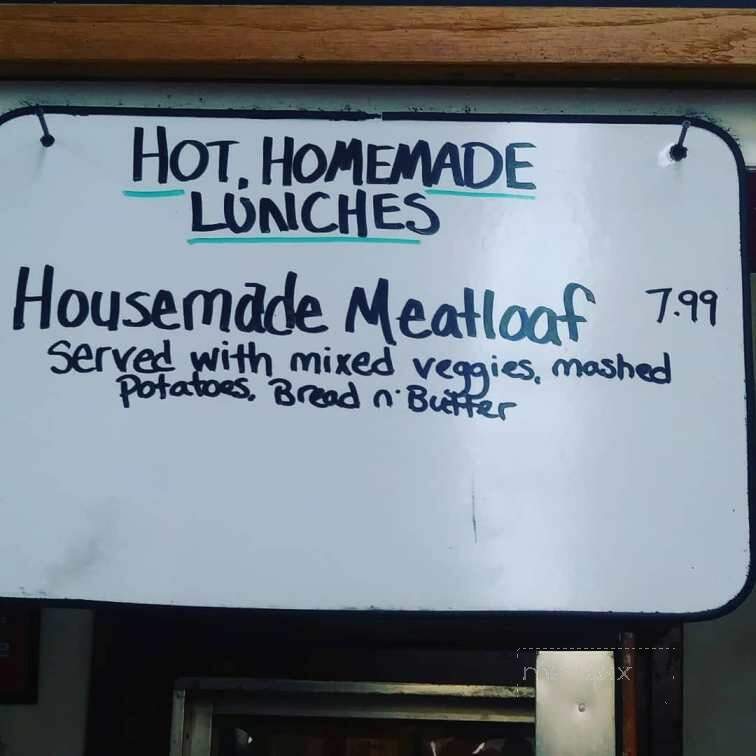 HOT, HOMEMADE
LUNCHES
Housemade Meatloaf 7.99
Served with mixed veggies, mashed
Potatoes, Bread n' Butter